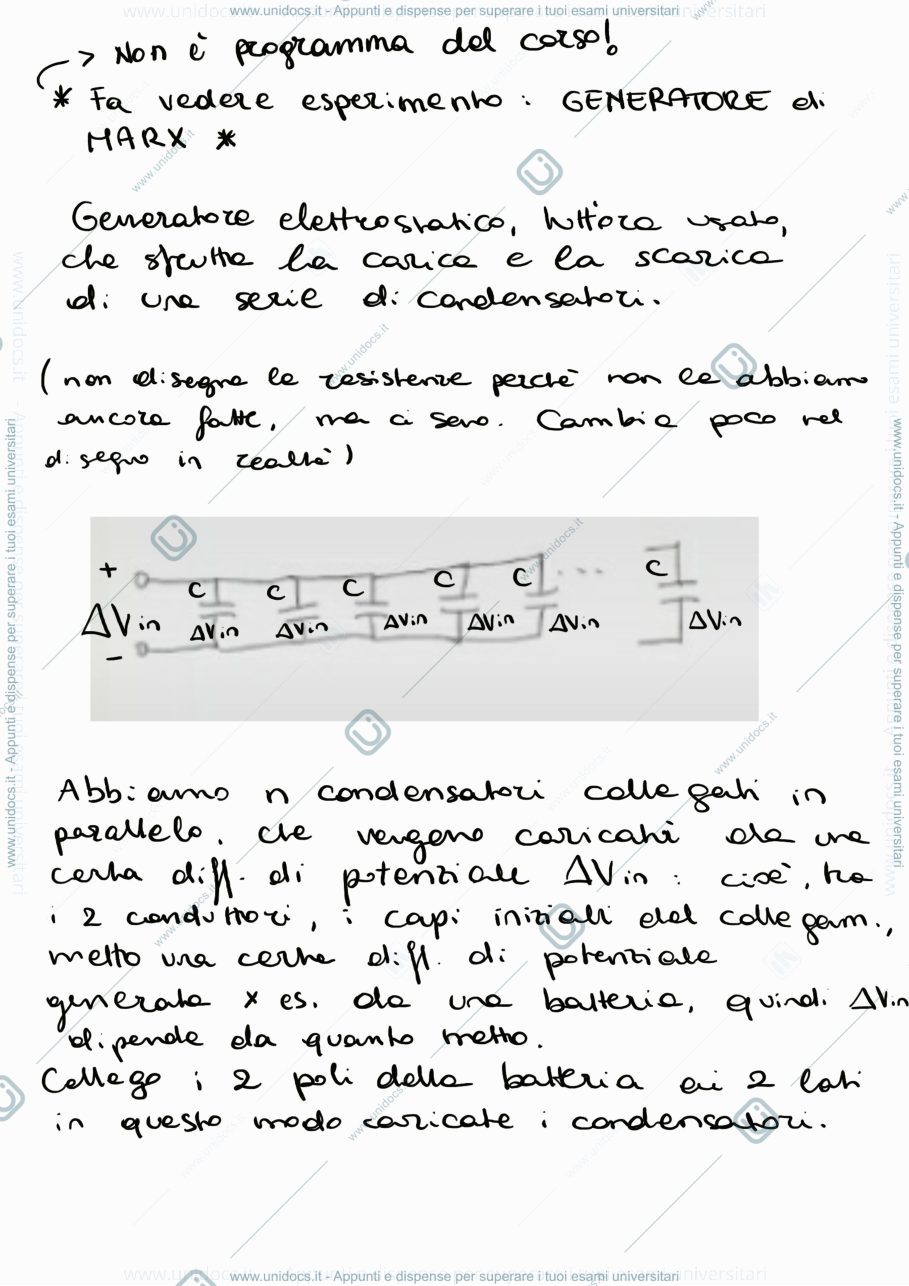 www.unidocs.it - Appunti e dispense per superare i tuoi esami universitari
-> Non è programma del corso!
* Fa vedere esperimento : GENERATORE di
MARX *
Generatore elettrostatico, tutt'ora usato,
che sfrutta la carica e la scarica
di una serie di condensatori.
(non disegna le resistenze perchè non le abbiamo
ancora fatte, ma ci sono. Cambia poco nel
disegno in realtà)
+ C C C C C ... C
ΔVin ΔVin ΔVin ΔVin ΔVin ΔVin ΔVin
-
Abbiamo n condensatori collegati in
parallelo, che vengono caricati da una
certa diff. di potenziale ΔVin : cioè, tra
i 2 conduttori, i capi iniziali del collegam.,
metto una certa diff. di potenziale
generata x es. da una batteria, quindi ΔVin
dipende da quanto metto.
Collego i 2 poli della batteria ai 2 lati
in questo modo caricate i condensatori.
www.unidocs.it - Appunti e dispense per superare i tuoi esami universitari